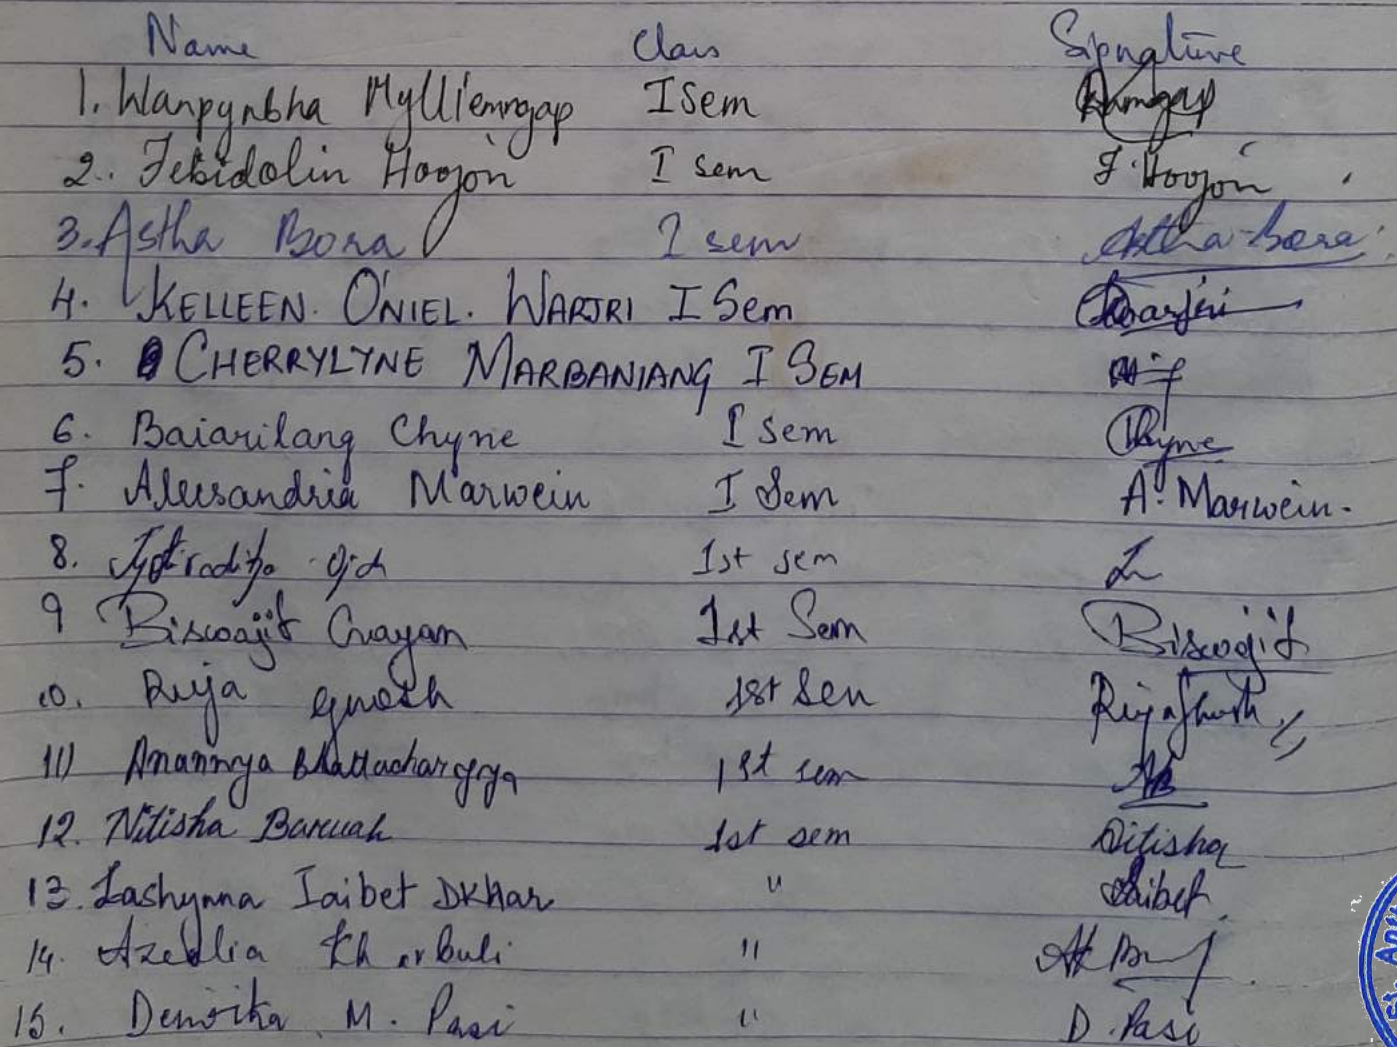 Name Class Signature
1. Wanpynbha Mylliemngap I Sem
2. Febidolin Hoojon I sem F. Hoojon
3. Astha Bora I sem Astha Bora
4. KELLEEN. O'NIEL. WARJRI I Sem Warjri
5. CHERRYLYNE MARBANIANG I SEM
6. Baiarilang Chyne I sem Chyne
7. Alessandria Marwein I Sem A. Marwein.
8. 1st sem
9 Biswajit Gayan 1st Sem Biswajit
10. Riya Ghosh 1st Sem Riya Ghosh
11) Anannya Bhattacharyya 1st sem AB
12. Nitisha Baruah 1st sem Nitisha
13. Lashynna Iaibet DKhar " Iaibet
14. Azedlia Kharbuli "
15. M. Pasi " D. Pasi
ST.